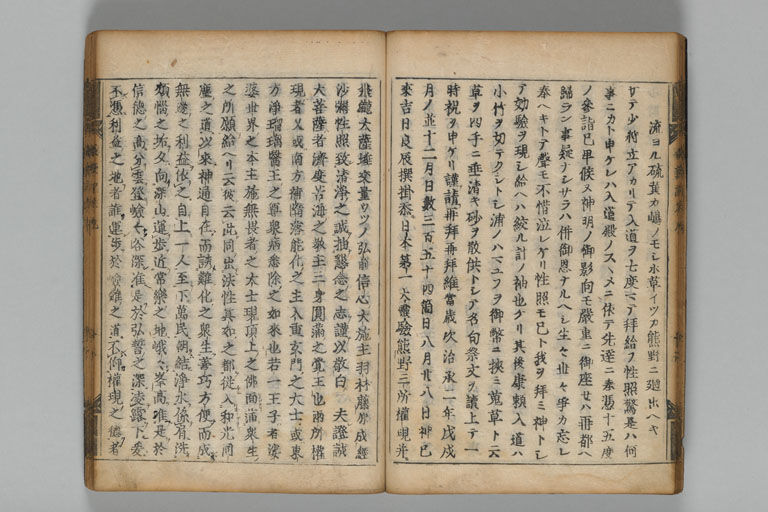 流ヨル硫黄カ嶋ノモシホ草イツカ熊野ニ廻出ヘキ
サテ少将立アカリテ入道ヲ七度マテ拝給フ性照驚是ハ何
事ニカト申ケレハ入道殿ノスヽメニ依テ先達ニ奉憑十五度
ノ参詣已畢候ヌ神明ノ御影向モ嚴重ニ御座セハ都ヘ
歸ラン事疑ナシサラハ併御恩ナルヘシ生々世々争カ忘レ
奉ヘキトテ聲モ不惜泣レケリ性照モ已ト我ヲ拝ミ神トシ
テ効驗ヲ現シ給ヘハ絞ル計ノ袖也ケリ其後康頼入道ハ
小竹ヲ切テクシトシ浦ノハマユフヲ御幣ニ挾ミ蒐草ト云
草ヲ四手ニ垂清キ砂ヲ散供トシテ名句祭文ヲ讀上テ一
時祝ヲ申ケリ謹請再拝再拝維當歳次治承二年戊戌
月ノ並十二月日數三百五十四箇日八月廿八日神已
來吉日良辰撰掛忝日本第一大靈驗熊野三所權現并
飛瀧大薩埵交量ウツノ弘前信心大施主羽林藤原成經
沙彌性照致清淨之誠抽懇念之志謹以敬白夫證誠
大菩薩者濟度苦海之教主三身圓滿之覺王也兩所權
現者又或南方補陀落能化之主入重玄門之大士或東
方淨瑠璃醫王之尊衆病悉除之如来也若一王子者娑
婆世界之本主施無畏者之大士現頂上之佛面滿衆生
之所願給ヘリ云彼云此同出法性真如之都從入和光同
塵之道以来神通自在而誘難化之衆生善巧方便而成
無邊之利益依之自上一人至下萬民朝結淨水係肩洗
煩惱之垢夕向深山運歩近常樂之地峨々峯高准是於
信德之高分雲登嶮々谷深准是於弘誓之深凌露下爰
不憑利益之地者誰運歩於嶮難之道不仰權現之德者